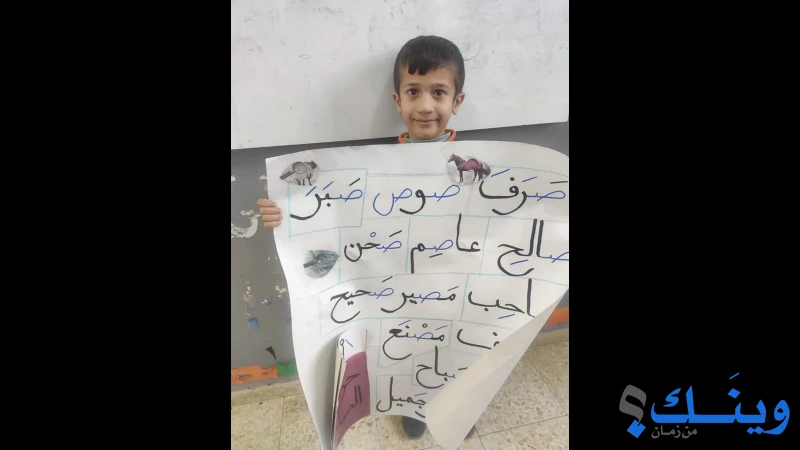 صَرَفَا صوص صَبَرَ
صالِح عاصِم صَحْن
احِب مَصير صَحيح
فا مَصْنَع
صَباح
جَميل
وينَـك؟
من زمان